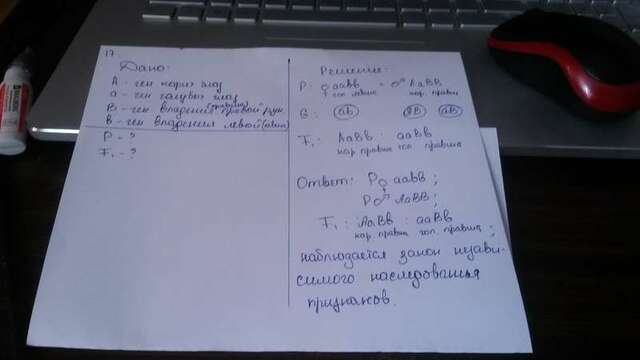 17.
Дано:
А - ген карих глаз
а - ген голубых глаз
В - ген владения (правша) правой рук
в - ген владения левой (левша)
Р - ?
F₁ - ?
Решение:
Р: ♀ aaвв × ♂ АаВВ
гол левша кар. правша
G: ав АВ аВ
F₁: АаВв : ааВв
кар правша гол. правша
Ответ: Р♀ аавв;
Р♂ АаВВ;
F₁: АаВв : ааВв
кар. правша гол. правша;
наблюдается закон незави-
симого наследования
признаков.